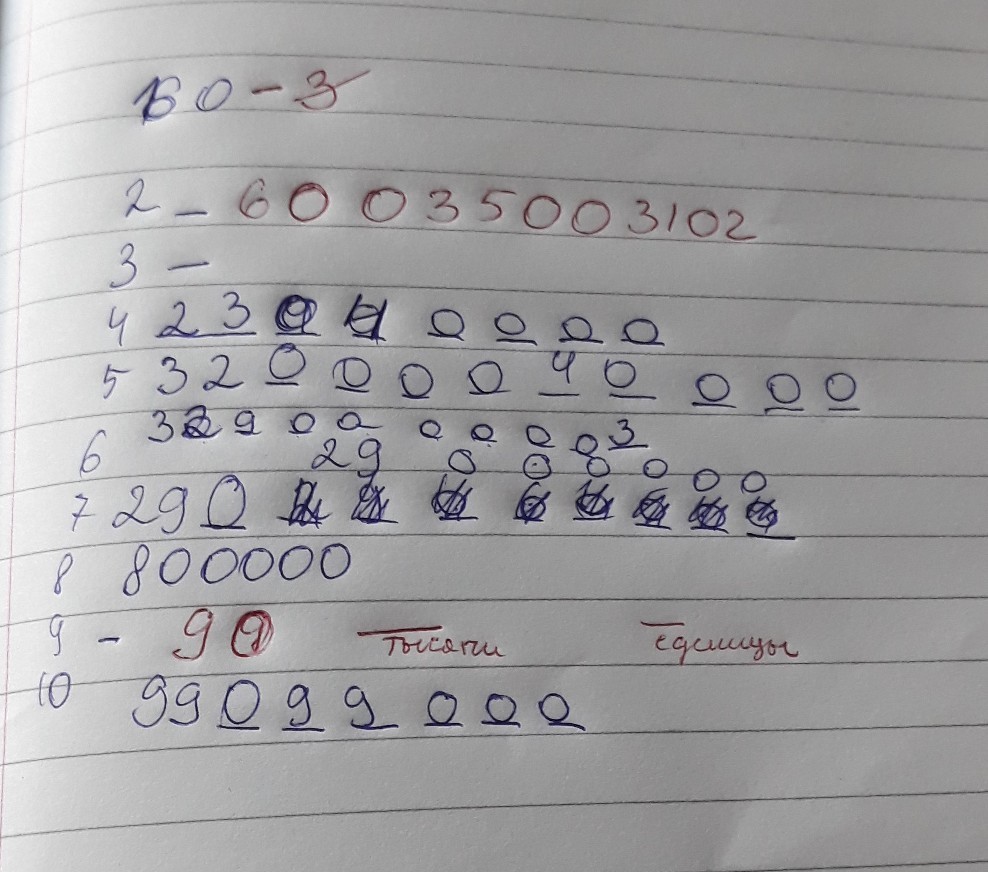 60 - 3
2 - 60035003102
3 -
4 23 0 4 0 0 0 0
5 32 0 0 0 0 4 0 0 0 0
32900 00003
6 29 0 0 0 0 0 0
7 29 0
8 800000
9 - 90 тысячи единицы
10 99 0 9 9 0 0 0